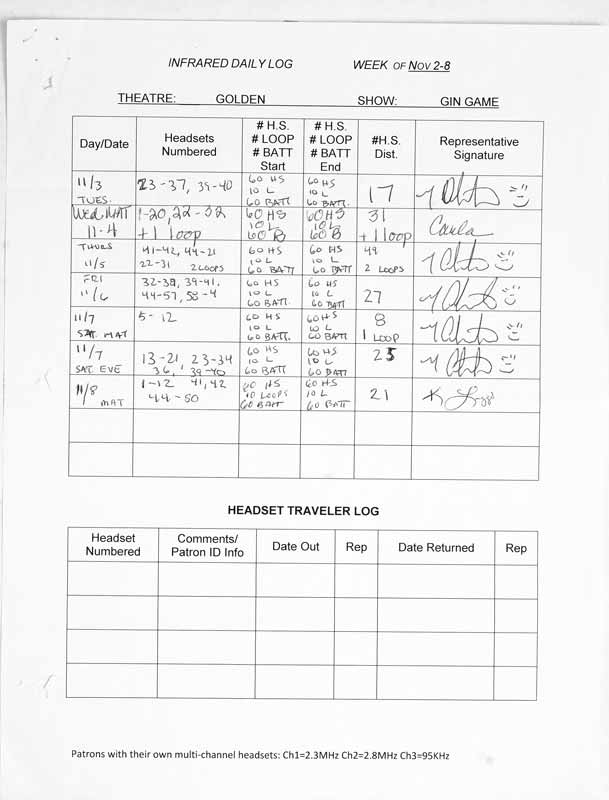 INFRARED DAILY LOG WEEK OF NOV 2-8
THEATRE: GOLDEN SHOW: GIN GAME
Day/Date
Headsets
Numbered
# H.S.
# LOOP
# BATT
Start
# H.S.
# LOOP
# BATT
End
#H.S.
Dist.
Representative
Signature
11/3
TUES.
23-37, 39-40
60 HS
10 L
60 BATT
60 HS
10 L
60 BATT.
17
Wed MAT
11-4
1-20, 22-32
+1 loop
60 HS
10 L
60 B
60 HS
10 L
60 B
31
+1 loop
Carla
THURS
11/5
41-42, 44-21
22-31 2 LOOPS
60 HS
10 L
60 BATT
60 HS
10 L
60 BATT
49
2 LOOPS
FRI
11/6
32-37, 39-41,
44-57, 58-4
60 HS
10 L
60 BATT.
60 HS
10 L
60 BATT
27
11/7
SAT. MAT
5-12
60 HS
10 L
60 BATT.
60 HS
10 L
60 BATT
8
1 LOOP
11/7
SAT EVE
13-21, 23-34
36, 39-40
60 HS
10 L
60 BATT
60 HS
10 L
60 BATT
25
11/8
MAT
1-12 41, 42
44-50
60 HS
10 LOOPS
60 BATT
60 HS
10 L
60 BATT
21
HEADSET TRAVELER LOG
Headset
Numbered
Comments/
Patron ID Info
Date Out
Rep
Date Returned
Rep
Patrons with their own multi-channel headsets: Ch1=2.3MHz Ch2=2.8MHz Ch3=95KHz